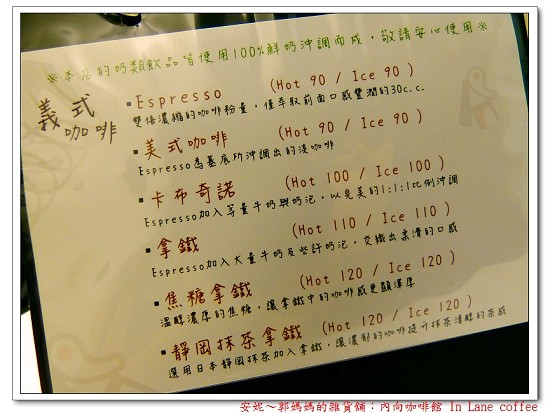 ※本店的奶類飲品皆使用100%鮮奶沖調而成，敬請安心使用※
義式
咖啡
▪Espresso (Hot 90 / Ice 90 )
雙倍濃縮的咖啡粉量，僅萃取前面口感豐潤的30c.c.
▪美式咖啡 (Hot 90 / Ice 90 )
Espresso為基底所沖調出的淡咖啡
▪卡布奇諾 (Hot 100 / Ice 100 )
Espresso加入等量牛奶與奶泡，以完美的1:1:1比例沖調
▪拿鐵 (Hot 110 / Ice 110 )
Espresso加入大量牛奶及些許奶泡，交織出柔滑的口感
▪焦糖拿鐵 (Hot 120 / Ice 120 )
溫醇濃厚的焦糖，讓拿鐵中的咖啡感更顯渾厚
▪靜岡抹茶拿鐵 (Hot 120 / Ice 120 )
選用日本靜岡抹茶加入拿鐵，讓濃郁的咖啡提升抹茶清醇的茶感
安妮～郭媽媽的雜貨舖：內向咖啡館 In Lane coffee